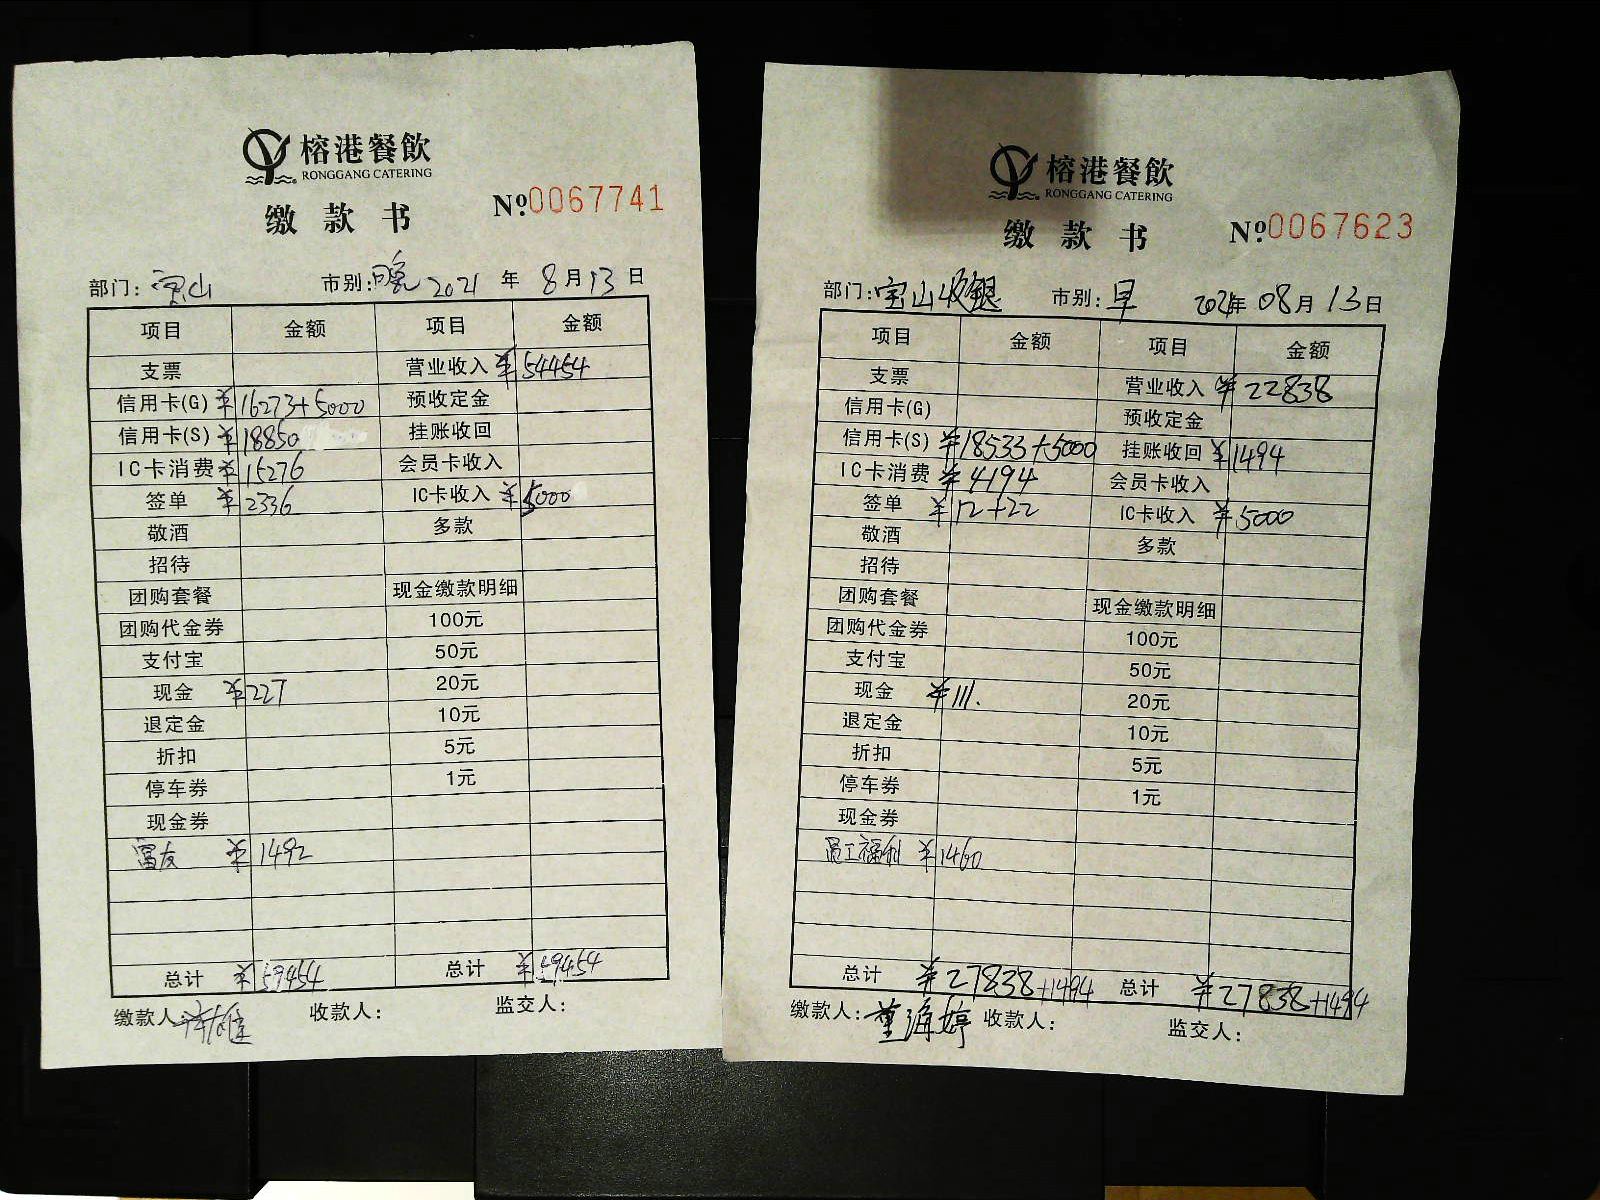 榕港餐飲
RONGGANG CATERING
缴款书 №:0067741
部门:宝山 市别:晚 2021年8月13日
项目 金额 项目 金额
支票 营业收入 ¥54454
信用卡(G) ¥16273+5000 预收定金
信用卡(S) ¥18850 挂账收回
IC卡消费 ¥15276 会员卡收入
签单 ¥2336 IC卡收入 ¥5000
敬酒 多款
招待
团购套餐 现金缴款明细
团购代金券 100元
支付宝 50元
现金 ¥227 20元
退定金 10元
折扣 5元
停车券 1元
现金券
富友 ¥1492
总计 ¥59454 总计 ¥59454
缴款人: 收款人: 监交人:
榕港餐飲
RONGGANG CATERING
缴款书 №:0067623
部门:宝山收银 市别:早 2021年08月13日
项目 金额 项目 金额
支票 营业收入 ¥22838
信用卡(G) 预收定金
信用卡(S) ¥18533+5000 挂账收回 ¥1494
IC卡消费 ¥4194 会员卡收入
签单 ¥12+22 IC卡收入 ¥5000
敬酒 多款
招待
团购套餐 现金缴款明细
团购代金券 100元
支付宝 50元
现金 ¥111. 20元
退定金 10元
折扣 5元
停车券 1元
现金券
员工福利 ¥1460
总计 ¥27838+1494 总计 ¥27838+1494
缴款人:董海婷 收款人: 监交人: